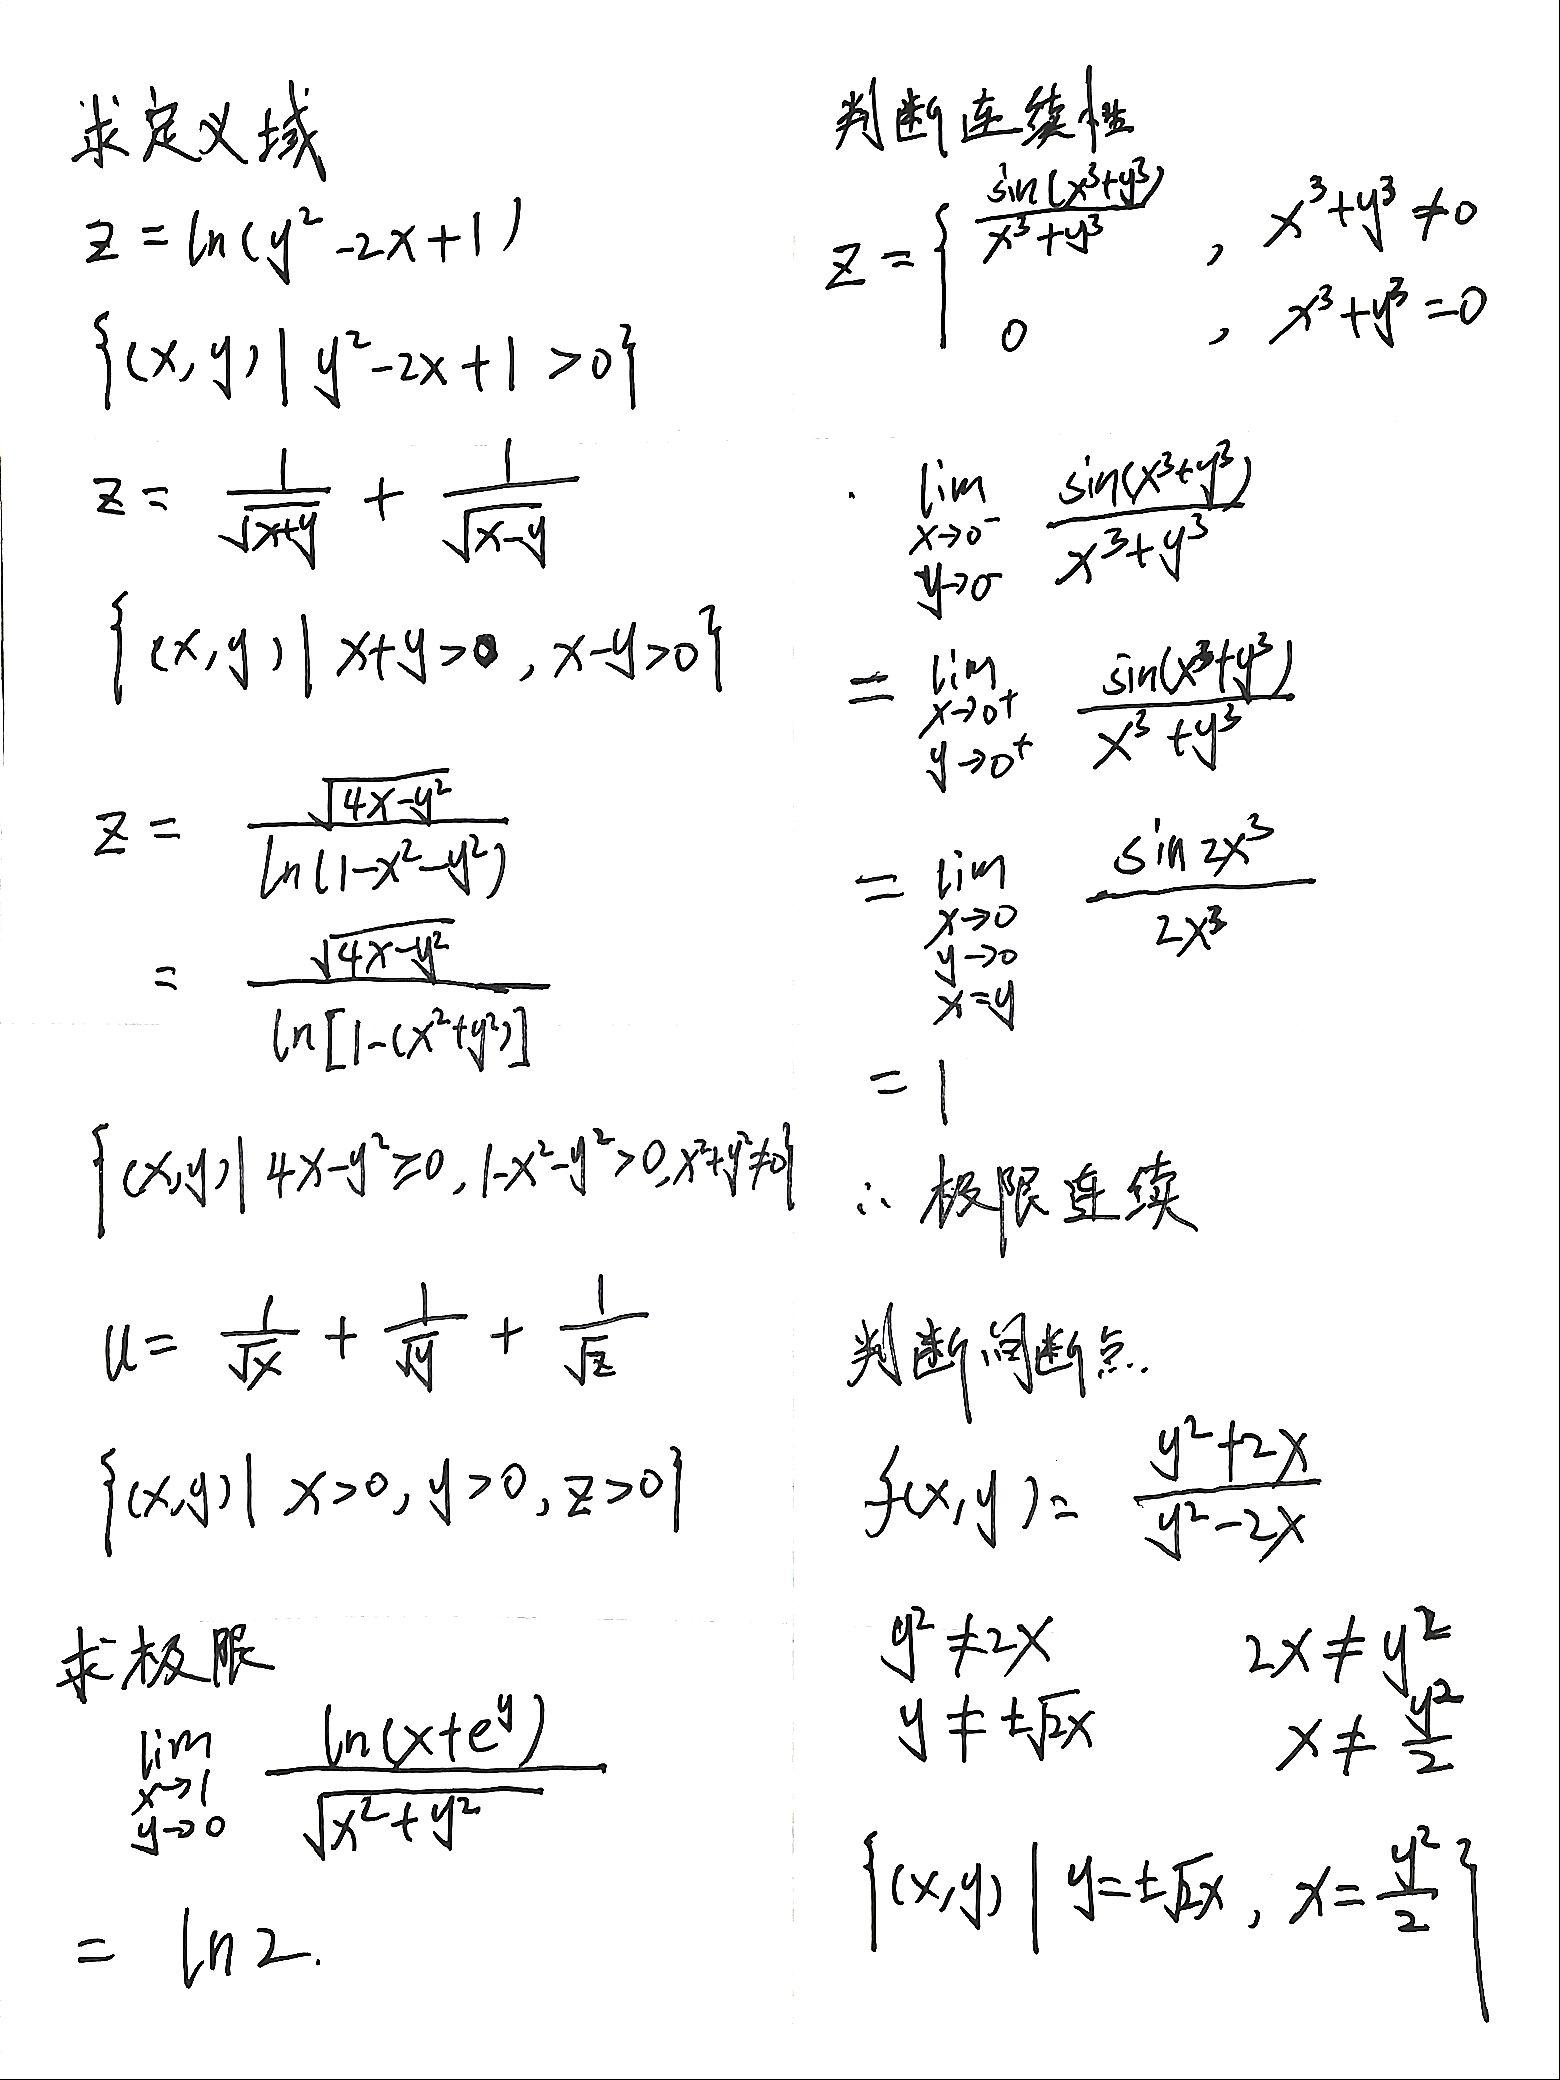 求定义域
z = ln(y² -2x+1)
{(x, y) | y²-2x+1 >0}
z = 1/√(x+y) + 1/√(x-y)
{(x, y) | x+y>0, x-y>0}
z = √(4x-y²)/ln(1-x²-y²)
= √(4x-y²)/ln[1-(x²+y²)]
{(x,y) | 4x-y²≥0, 1-x²-y²>0, x²+y²≠0}
u = 1/√x + 1/√y + 1/√z
{(x,y) | x>0, y>0, z>0}
求极限
lim x→1 y→0 ln(x+e^y)/√(x²+y²)
= ln2.
判断连续性
z = { sin(x³+y³)/(x³+y³) , x³+y³≠0
0 , x³+y³=0
lim x→0⁻ y→0⁻ sin(x³+y³)/(x³+y³)
= lim x→0⁺ y→0⁺ sin(x³+y³)/(x³+y³)
= lim x→0 y→0 x=y sin2x³/2x³
= 1
∴ 极限连续
判断间断点.
f(x,y) = (y²+2x)/(y²-2x)
y²≠2x 2x≠y²
y≠±√2x x≠y²/2
{(x,y) | y=±√2x, x=y²/2}